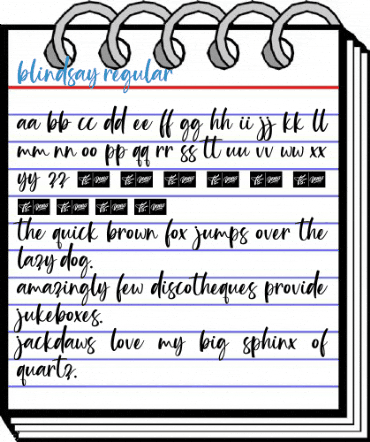 blindsay regular
aa bb cc dd ee ff gg hh ii jj kk ll
mm nn oo pp qq rr ss tt uu vv ww xx
yy zz
the quick brown fox jumps over the
lazy dog.
amazingly few discotheques provide
jukeboxes.
jackdaws love my big sphinx of
quartz.